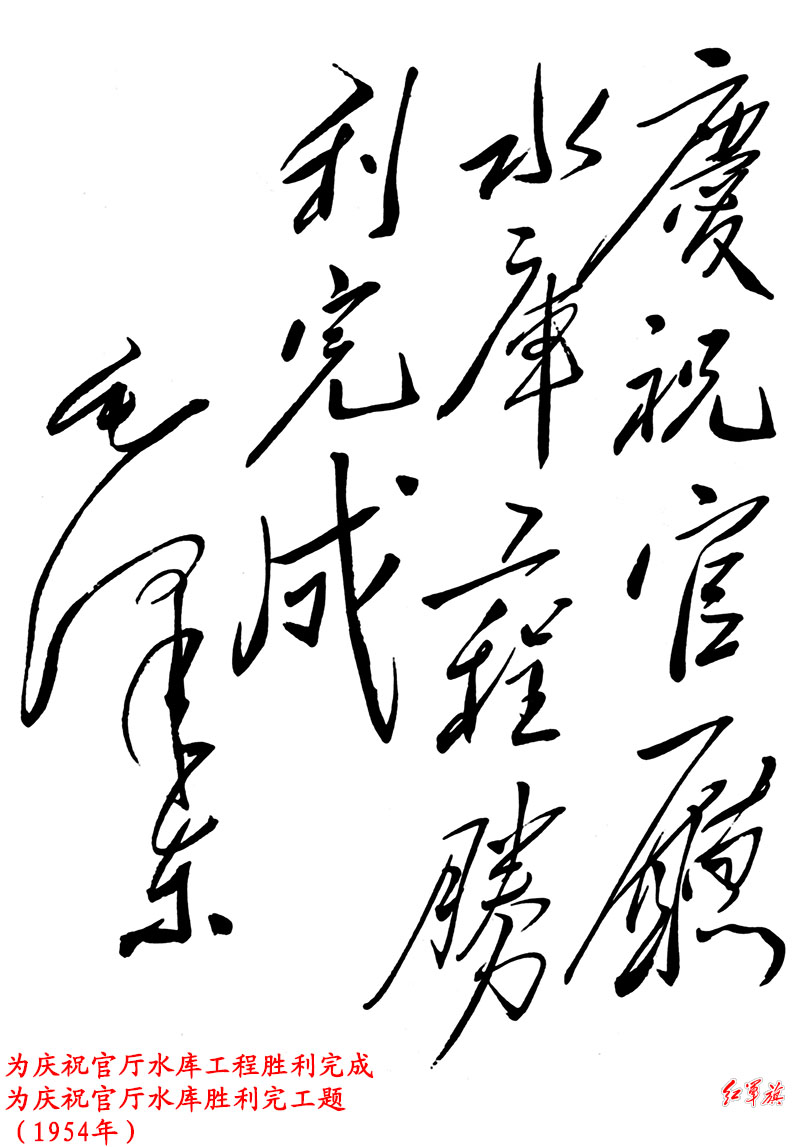 慶祝官廳
水庫工程勝
利完成
毛澤东
为庆祝官厅水库工程胜利完成
为庆祝官厅水库胜利完工题
（1954年）
红军旗